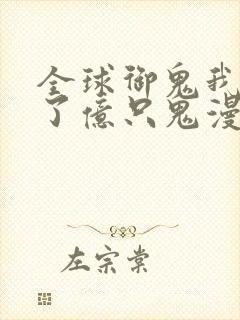 全球御鬼我
了亿只鬼漫
左宗棠